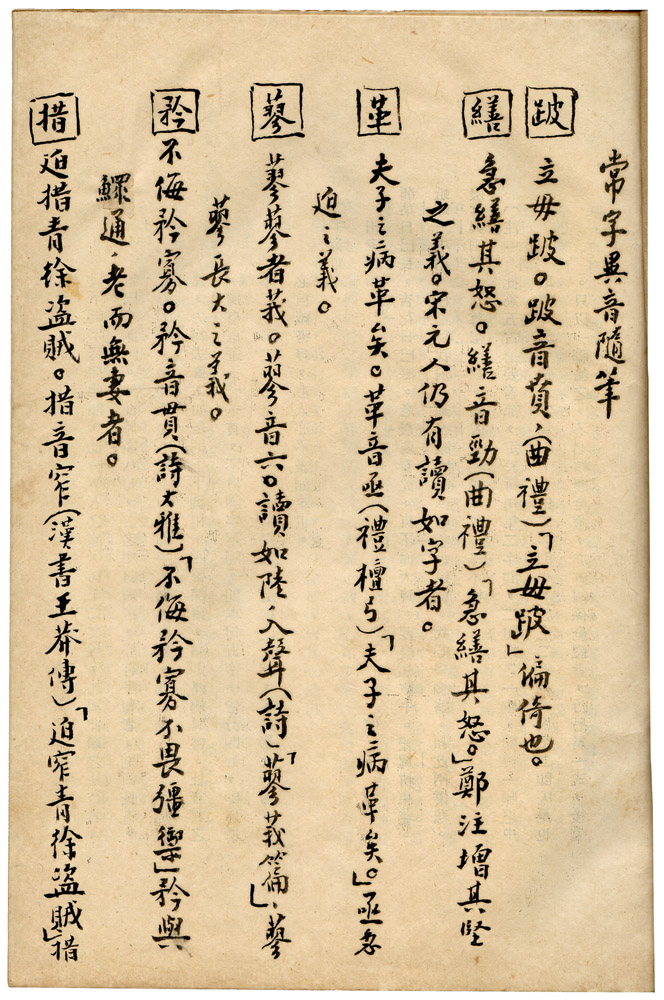 常字異音隨筆
跛 立毋跛。跛音賁,(曲禮)「立毋跛」偏倚也。
繕 急繕其怒。繕音勁(曲禮)「急繕其怒。」鄭注增其堅
之義。宋元人仍有讀如字者。
革 夫子之病革矣。革音亟(禮檀弓)「夫子之病革矣。」亟急
迫之義。
蓼 蓼蓼者莪。蓼音六。讀如陸,入聲(詩)「蓼莪篇」,蓼
蓼長大之義。
矜 不侮矜寡。矜音貫(詩大雅)「不侮矜寡不畏彊禦」矜與
鰥通,老而無妻者。
措 迫措青徐盜賊。措音窄(漢書王莽傳)「迫窄青徐盜賊」措